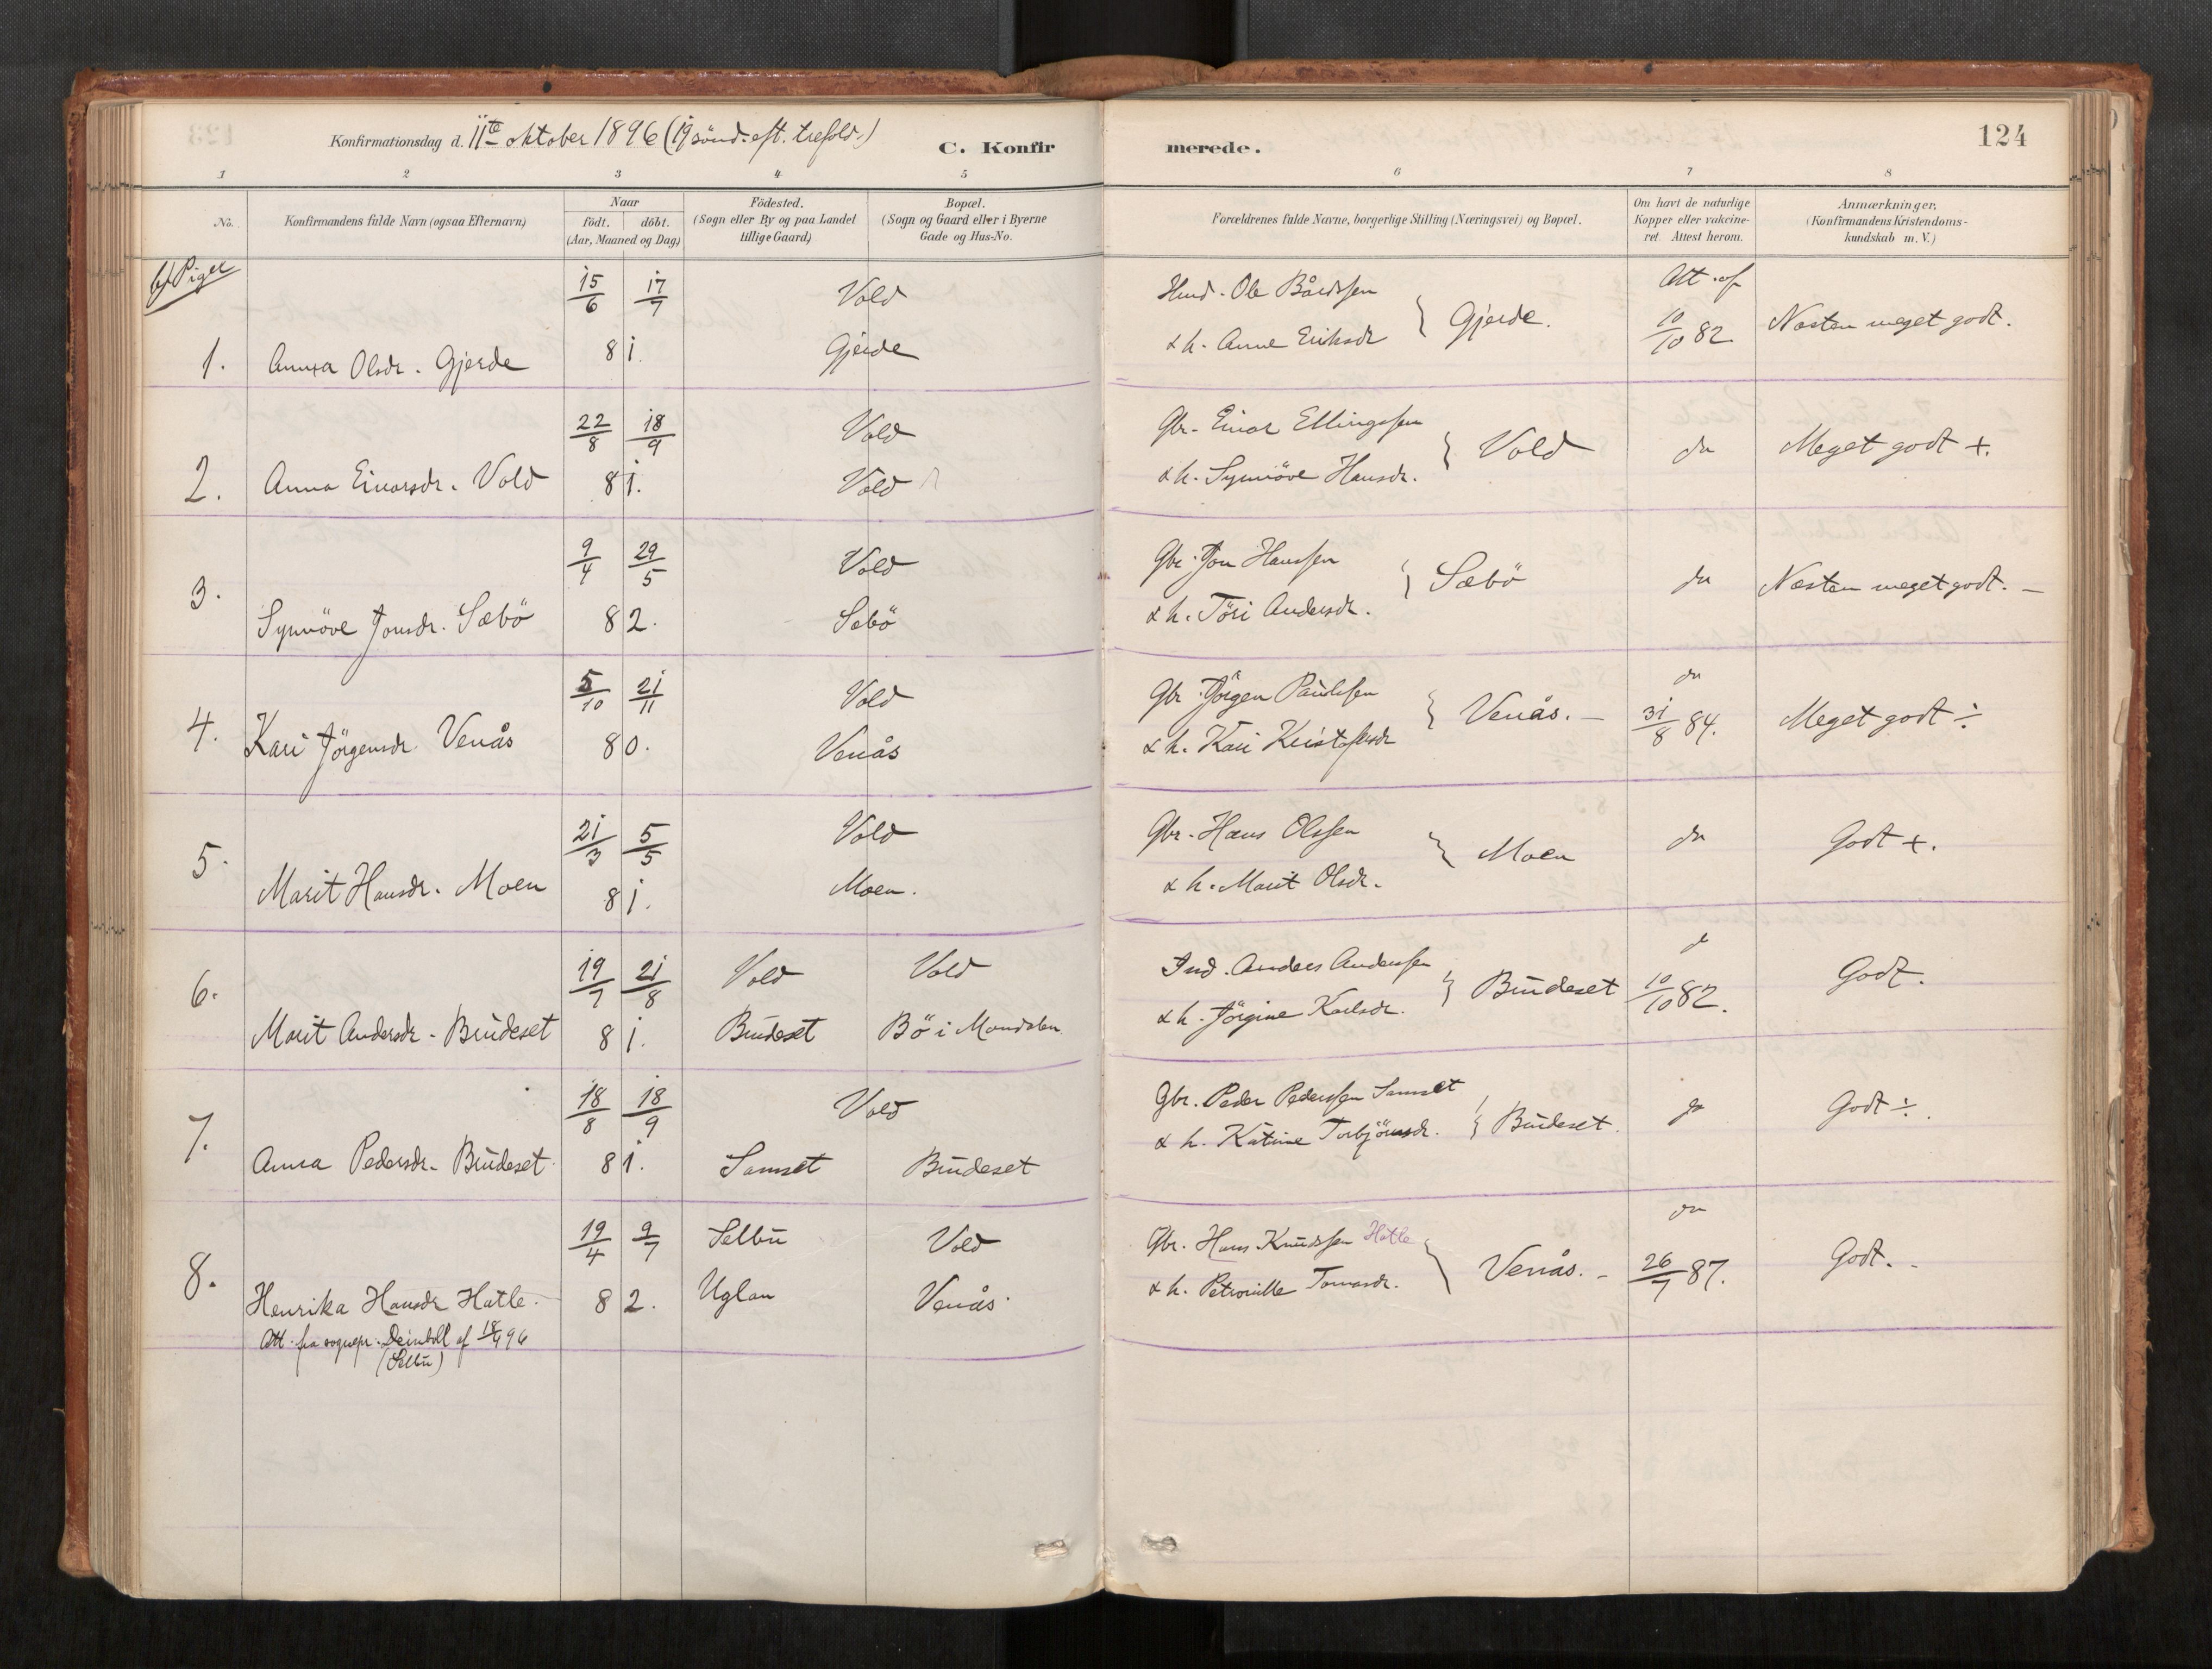 Konfirmationsdag d. 11te oktober 1896 (19 sönd. eft. trefold.)
C. Konfirmerede.
124
1 2 3 4 5 6 7 8
No.
Konfirmandens fulde Navn (ogsaa Efternavn)
Naar
födt. döbt.
(Aar, Maaned og Dag)
Födested.
(Sogn eller By og paa Landet
tillige Gaard)
Bopæl.
(Sogn og Gaard eller i Byerne
Gade og Hus-No.
Forældrenes fulde Navne, borgerlige Stilling (Næringsvei) og Bopæl.
Om havt de naturlige
Kopper eller vakcine-
ret. Attest herom.
Anmærkninger,
(Konfirmandens Kristendoms-
kundskab m. V.)
b) Piger
15/6 17/7 Vold
Ole Bårdssen
Att. af
1. Anna Olsdr. Gjerde 81. Gjerde
& h. Anne Eriksdr } Gjerde. 10/10 82 Næsten meget godt.
22/8 18/9 Vold
Gbr. Einar Ellingssen
2. Anna Einarsdr. Vold 81. Vold
& h. Synnöve Hansdr. } Vold do Meget godt +.
9/4 29/5 Vold
Gbr. Jon Hanssen
3. Synnöve Jonsdr. Sæbö 82. Sæbö
& h. Töri Andersdr. } Sæbö do Næsten meget godt. –
5/10 21/11 Vold
Gbr. Jörgen Paulssen
do
4. Kari Jörgensdr Venås 80. Venås
& h. Kari Kristofersdr } Venås. – 31/8 84. Meget godt ÷
21/3 5/5 Vold
Gbr. Hans Olssen
5. Marit Hansdr. Moen 81. Moen.
& h. Marit Olsdr. } Moen do Godt +.
19/7 21/8 Vold Vold
Ind. Anders Anderssen
6. Marit Andersdr - Brudeset 81. Brudeset Bö i Måndalen
& h. Jörgine Karlsdr. } Brudeset 10/10 82. Godt.
18/8 18/9 Vold
Gbr. Peder Pederssen Samset
7. Anna Pedersdr. Brudeset 81. Samset Brudeset
& h. Katrine Torbjörnsdr. } Brudeset. do Godt ÷.
19/4 9/7 Selbu Vold
Gbr. Hans Knudssen Hatle
do
8. Henrika Hansdr Hatle. 82. Uglan Venås.
& h. Petronille Tomasdr. } Venås. – 26/7 87. Godt. –
Att. fra sognepr. Deinboll af 18/9 96
(Selbu)